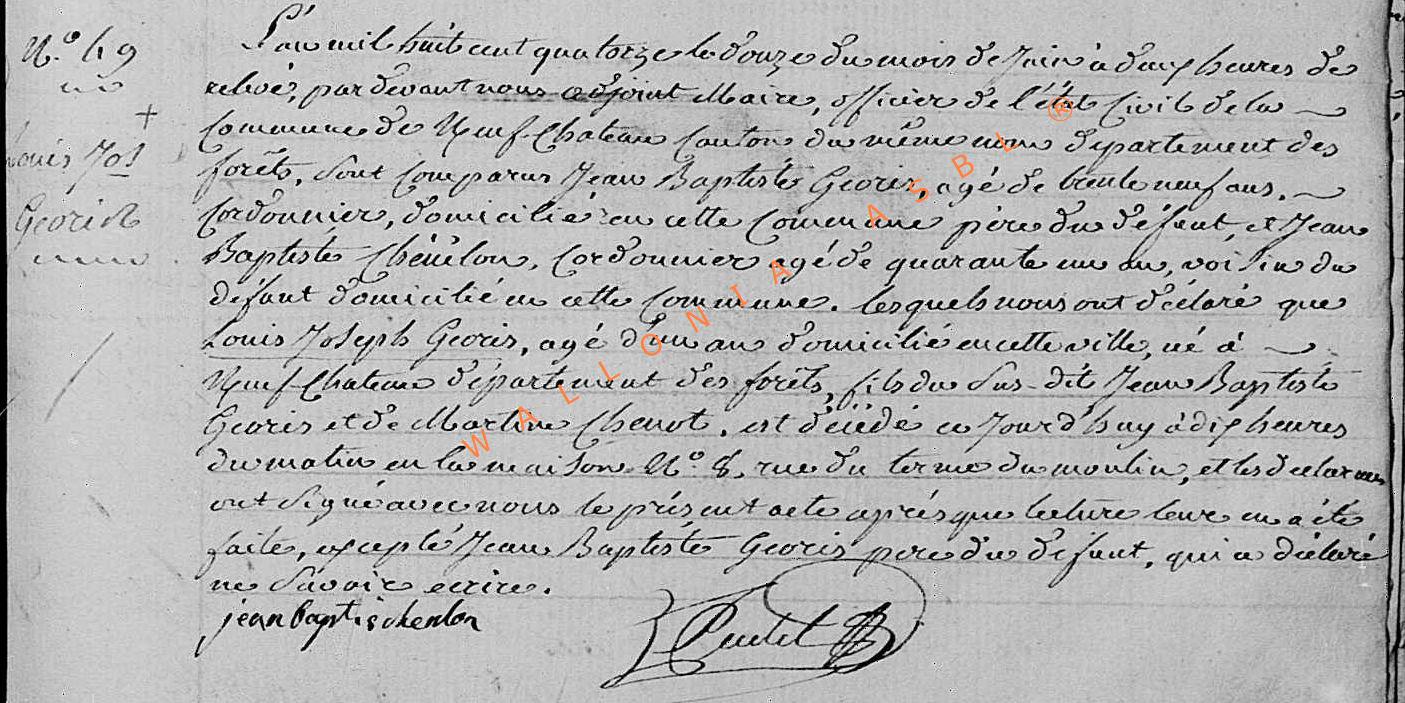 N.º 49
+
Louis Jos
Georis
L'an mil huit cent quatorze le douze du mois de Juin à deux heures de
relevé, pardevant nous adjoint Maire, officier de l'état Civil de la
Commune de Neuf-Chateau Canton du même nom département des
forêts, sont comparus Jean Baptiste Georis, agé de trente neuf ans,
Cordonnier, domicilié en cette Commune père du défunt, et Jean
Baptiste Chénélon, Cordonnier agé de quarante un an, voisin du
défunt domicilié en cette Commune. lesquels nous ont déclaré que
Louis Joseph Georis, agé d'un an domicilié en cette ville, né à
Neuf-Chateau département des forêts, fils du Sus-dit Jean Baptiste
Georis et de Martine Chenot, est décédé ce Jourd'huy à dix heures
du matin en la maison N.º 8, rue du terme du moulin, et les déclarans
ont signé avec nous le présent acte après que lecture leur en a été
faite, excepté Jean Baptiste Georis père du défunt, qui a déclaré
ne Savoir ecrire.
jean baptis chenlon
WALLONIA ASBL ®